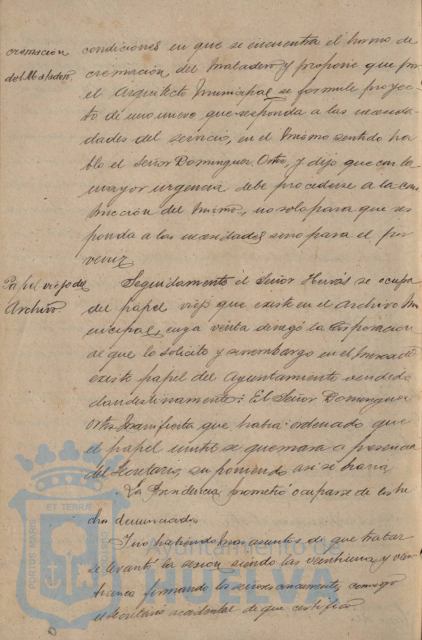 cremación
del Matadero.
condiciones en que se encuentra el horno de
cremación del Matadero y propone que por
el Arquitecto Municipal se formule proyec-
to de uno nuevo que responda a las necesi-
dades del servicio, en el mismo sentido ha-
bló el Señor Dominguez Ortiz, y dijo que con la
mayor urgencia debe procederse a la cons
trucción del mismo, no solo para que res
ponda a las necesidades sino para el por
venir.
Papel viejo del
Archivo.
Seguidamente el Señor Hervás se ocupa
del papel viejo que existe en el Archivo Mu
nicipal, cuya venta denegó la Corporación
al que lo solicitó y sin embargo en el mercado
existe papel del Ayuntamiento vendido
clandestinamente: El Señor Dominguez
Ortiz manifiesta que había ordenado que
el papel inútil se quemara a presencia
del Secretario, suponiendo así se haría.
La Presidencia prometió ocuparse de los he
chos denunciados.
Y no habiendo mas asuntos de que tratar
se levantó la sesion siendo las veintiuna y
firmando los señores concurrentes, conmigo
el Secretario accidental de que certifico.
PORTUS MARIS ET TERRAE
Ayuntamiento de